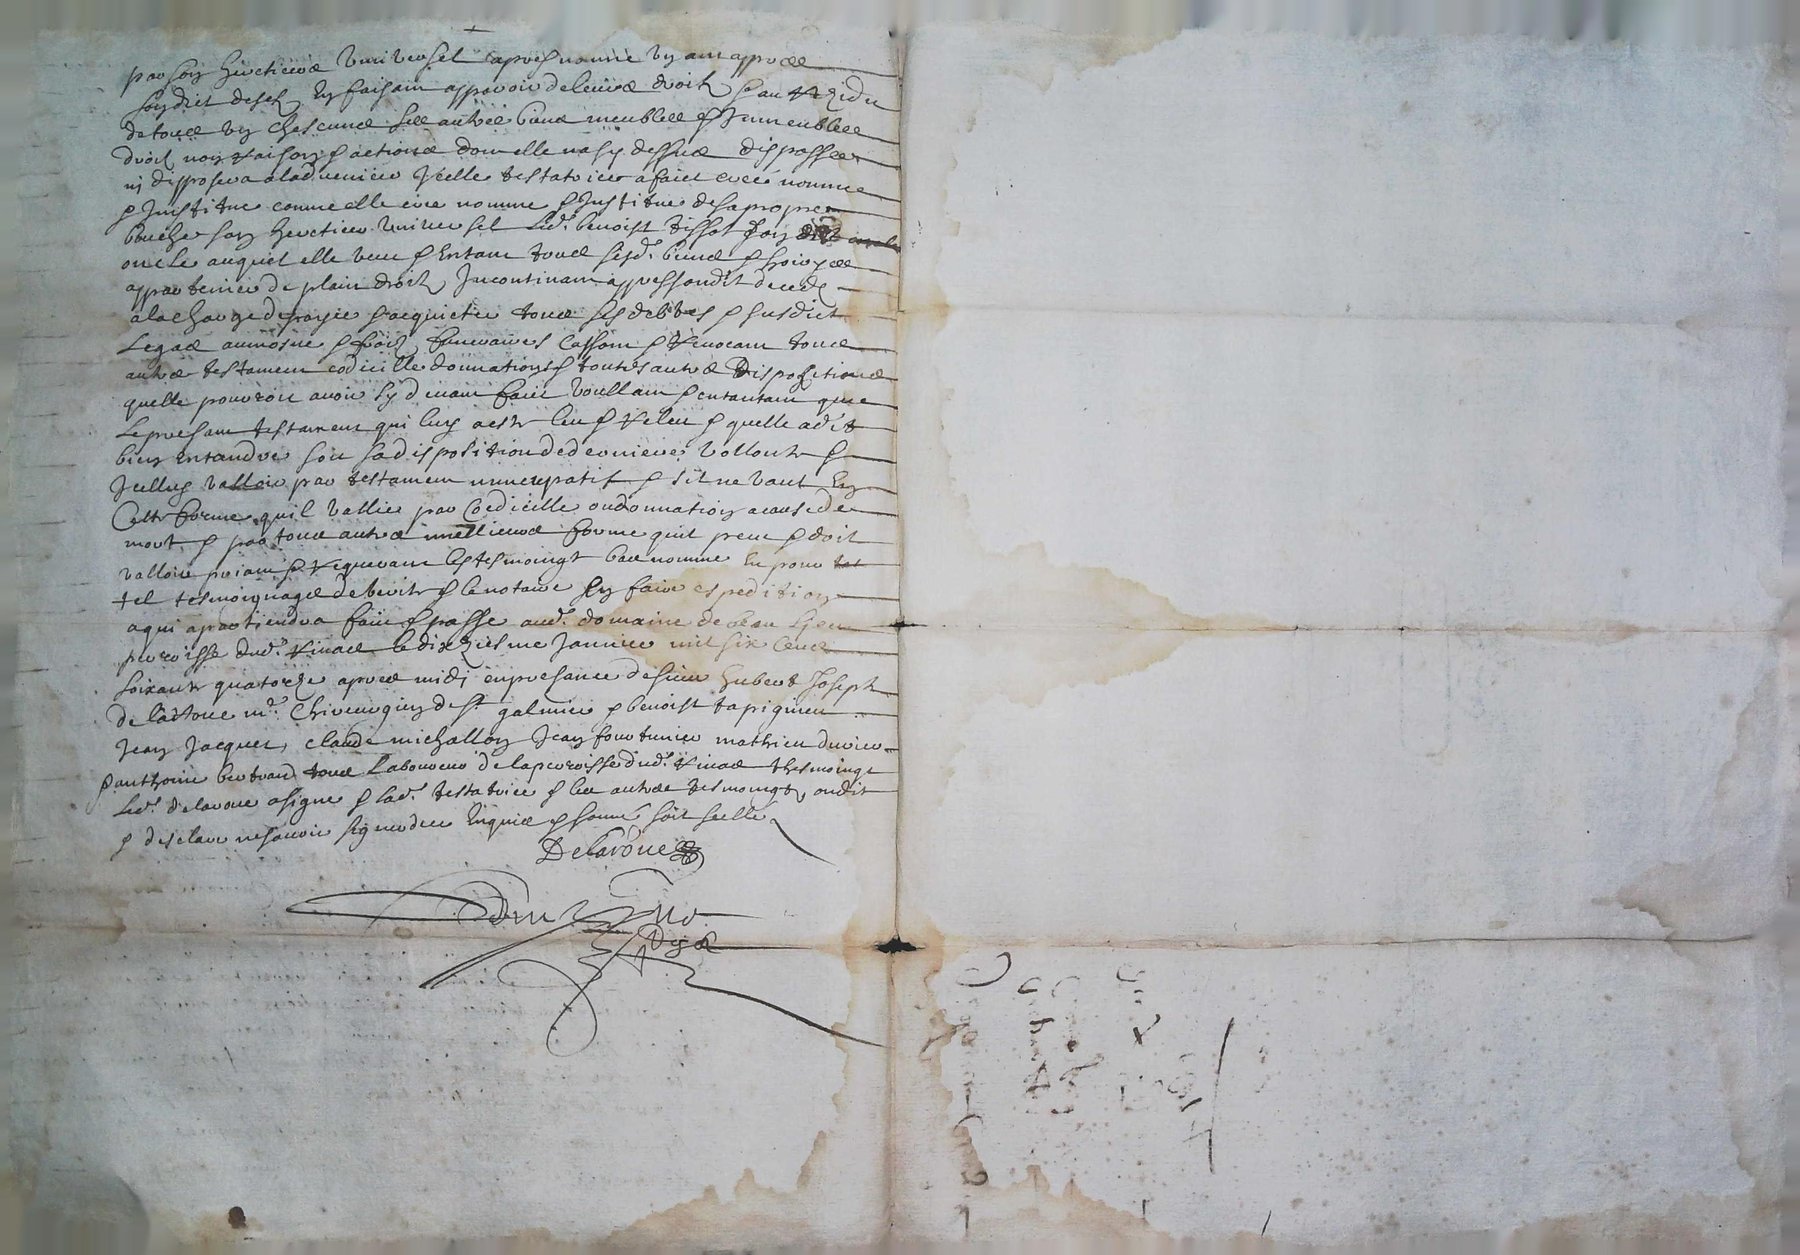 par son heretiere universel apres nomme un an apres
son dict deses en faisant apparoir de leurs droits
de tous un chescungs ses autres biens meubles & Immeubles
droits noms raisons & actions dont elle na sy dessus dispose
ny disposera a ladvenier Icelle testatrice a faict cree nomme
& Institue comme elle cree nomme & Institue de sa propre
bouche son heretier universel led. benoist tissot son
oncle auquel elle veut & entant tous sesd. biens & hoiries
appartenier de plain droict Incontinant apres sondit deceds
a la charge de payer & acquicter tous ses debtes & susdict
Legas aumosne & frais funeraires Cassant & revocant tous
autres testament codicille donnations & toutes autres dispositions
quelle pouroit avoir sy devant faict Voullant & entantant que
le presant testament qui luy a este leu & releu & quelle a dit
bien entandre soit sa disposition de derniere vollonte &
Icelluy valloir par testament nuncupatif & sil ne vaut en
Cette forme quil vallie par Codicille ou donnation a cause de
mort & par tous autres meilleures forme quil peut & doit
valloir priant & requerant les tesmoingt bas nommes en pour
tel tesmoignage debvoir & le notaire en faire espedition
a qui apartiendra faict & passe aud. domaine de beau lieu
paroisse dud. rivas le dixziesme Janvier mil six Cents
soixante quatorze apres midi en presance de sieur hubert Joseph
De laroue mre. Chirurgien de st galmier & benoist tapigneu
Jean Jacquet, claude michallon Jean fourtunier mathieu duvier
& anthoine bertrand tous laboureur de la paroisse dud. rivas thesmoingt
Led. delaroue a signe & lad. testatrice & les autres tesmoingts, ont dit
& desclare ne scavoir signer de ce enquis & somme soit scelle
Delaroue